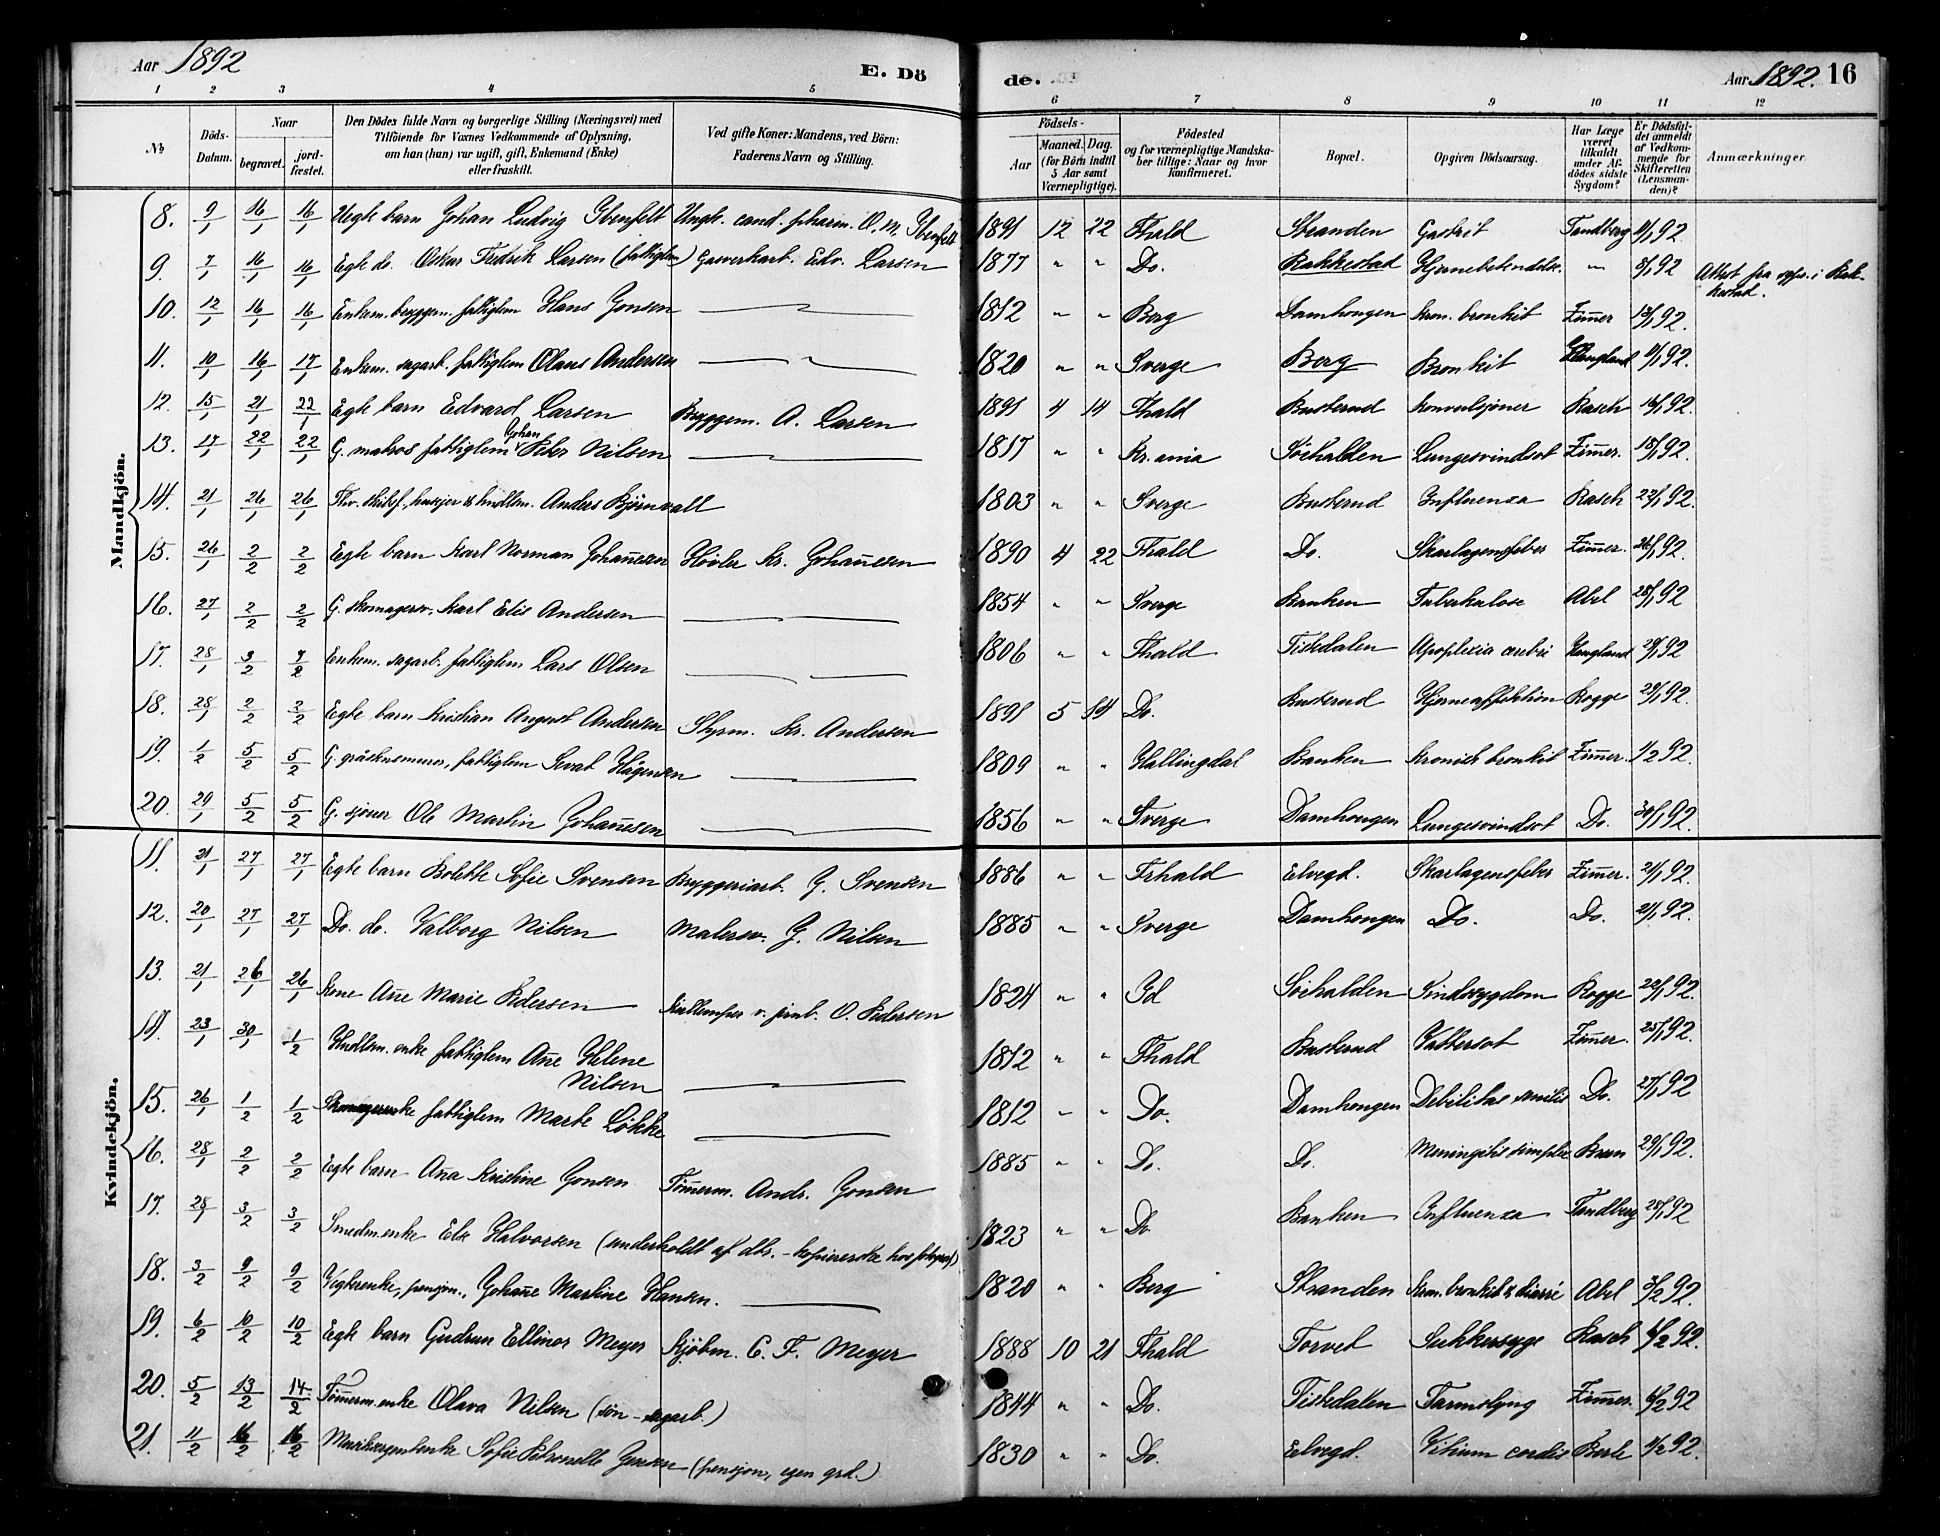 Aar 1892
E. Dö
de.
Aar 1892. 16
1 2 3 4 5 6 7 8 9 10 11 12
№
Döds-Datum.
Naar
begravet.
jord-fæstet.
Den Dödes fulde Navn og borgerlige Stilling (Næringsvei) med
Tilföiende for Voxnes Vedkommende af Oplysning,
om han (hun) var ugift, gift, Enkemand (Enke)
eller fraskilt.
Ved gifte Koner: Mandens, ved Börn:
Faderens Navn og Stilling.
Födsels-
Aar
Maaned. Dag.
(for Börn indtil
5 Aar samt
Værnepligtige).
Födested
og for værnepligtige Mandska-
ber tillige: Naar og hvor
konfirmeret.
Bopæl.
Opgiven Dödsaarsag.
Har Læge
været
tilkaldt
under Af-
dödes sidste
Sygdom?
Er Dödsfal-
det anmeldt
af Vedkom-
mende for
Skifteretten
(Lensman-
den)?
Anmærkninger.
Mandkjön.
8. 9/1 16/1 16/1 Uegte barn Johan Ludvig Ibenfelt Ungk. cand. pharm. O. M. Ibenfelt 1891 12 22 Fhald Stranden Gastrit Tandberg 11/1 92.
9. 7/1 16/1 16/1 Egte do. Oskar Fredrik Larsen (fattiglem) Gasverkarb. Edv. Larsen 1877 " " Do. Rakkestad Hjernebetendelse. — 8/1 92 Attest fra sogn. i Rak-
kestad.
10. 12/1 16/1 16/1 Enkem. bryggem. fattiglem Hans Jonsen 1812 " " Berg Damhougen kron. bronkit Zimer 13/1 92.
11. 10/1 16/1 17/1 Enkem. sagarb. fattiglem Olaus Andersen 1820 " " Sverge Berg Bronkit 11/1 92.
12. 15/1 21/1 22/1 Egte barn Edvard Larsen Bryggem. A. Larsen 1891 4 14 Fhald Busterud konvulsjoner Rasch 16/1 92.
13. 17/1 22/1 22/1 G. matros fattiglem Johan Peter Nilsen 1817 " " Kr.ania Söihalden Lungesvindsot Zimer. 18/1 92.
14. 21/1 26/1 26/1 Anders Björnvall 1803 " " Sverge Busterud Influenza Rasch 22/1 92.
15. 26/1 2/2 2/2 Egte barn Karl Norman Johanesen Hövler Kr. Johanesen 1890 4 22 Fhald Do. Skarlagensfeber Zimer. 26/1 92.
16. 27/1 2/2 2/2 G. skomagersv. Karl Elis Andersen 1854 " " Sverge Banken Tuberkulose Abel 28/1 92
17. 28/1 3/2 7/2 Enkem. sagarb. fattiglem Lars Olsen 1806 " " Fhald Tistedalen Apoplexia cerebri Haugland 29/1 92.
18. 28/1 2/2 2/2 Egte barn Kristian August Andersen Styrm. Kr. Andersen 1891 5 14 Do. Busterud Hjerneaffektion Rogge 29/1 92.
19. 1/2 5/2 5/2 G. gråstensmurer, fattiglem Sevat Hågensen 1809 " " Hallingdal Banken kronisk bronkit Zimer. 1/2 92.
20. 29/1 5/2 5/2 G. sjouer Ole Martin Johanesen 1856 " " Sverge Damhougen Lungesvindsot Do. 30/1 92.
Kvindekjön.
11. 21/1 27/1 27/1 Egte barn Bolette Sofie Svensen Bryggeriarb. J. Svensen 1886 " " Frhald Elvegd. Skarlagensfeber Zimer. 21/1 92.
12. 20/1 27/1 27/1 Do. do. Valborg Nilsen Malersv. J. Nilsen 1885 " " Sverge Damhougen Do. Do. 21/1 92.
13. 21/1 26/1 26/1 Kone Ane Marie Pedersen O. Pedersen 1824 " " Id Söihalden Sindssygdom Rogge 22/1 92.
14. 23/1 30/1 1/2 Husllm. enke fattiglem Ane Helene
Nilsen 1812 " " Fhald Busterud Vattersot Zimer. 25/1 92.
15. 26/1 1/2 1/2 Skomagerenke fattiglem Marte Lökke 1812 " " Do. Damhougen Debilitas senilis Do. 27/1 92
16. 28/1 2/2 2/2 Egte barn Ana Kristine Jonsen Tömerm. Andr. Jonsen 1885 " " Do. Do. Meningitis simplex Bruun 29/1 92.
17. 28/1 3/2 3/2 Smedm.enke Else Halvorsen (underholdt af dtr. – kopiererske hos fotograf) 1823 " " Do Banken Influenza Tandberg 28/1 92
18. 3/2 9/2 9/2 Vegterenke, pensjon., Johane Martine Hansen. 1820 " " Berg Stranden Kron. bronkit & diarré Abel 3/2 92.
19. 6/2 10/2 10/2 Egte barn Gudrun Ellinor Meyer Kjöbm. C. F. Meyer 1888 10 21 Fhald Torvet Sukkersyge Rasch 6/2 92.
20. 5/2 13/2 14/2 Tömerm.enke Olava Nilsen (sön – sagarb.) 1844 " " Do. Tistedalen Tarmslyng Zimer. 6/2 92
21. 11/2 16/2 16/2 Sofie Petronelle Jensen (pensjon, egen grd.) 1830 " " Do. Elvegd. Vitium cordis 11/2 92.